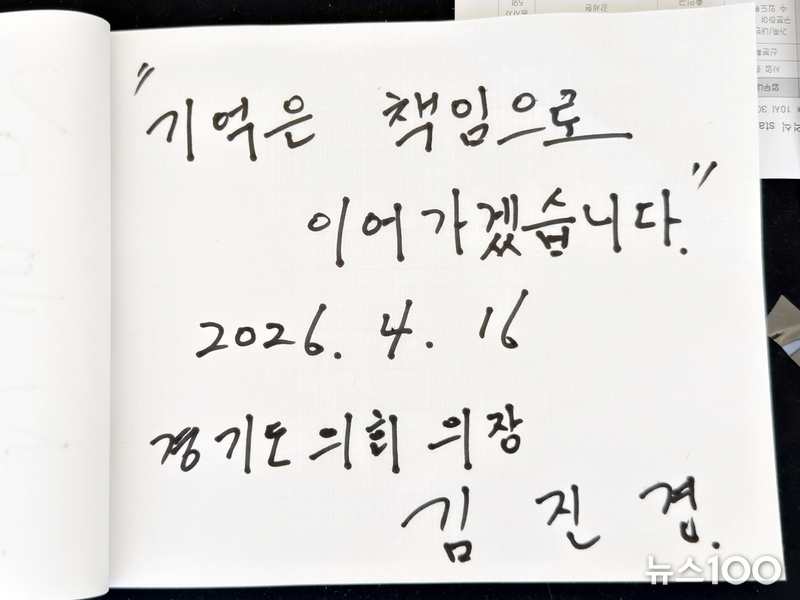 "기억은 책임으로
이어가겠습니다."
2026. 4. 16
경기도의회 의장
김 진 경.
뉴스100